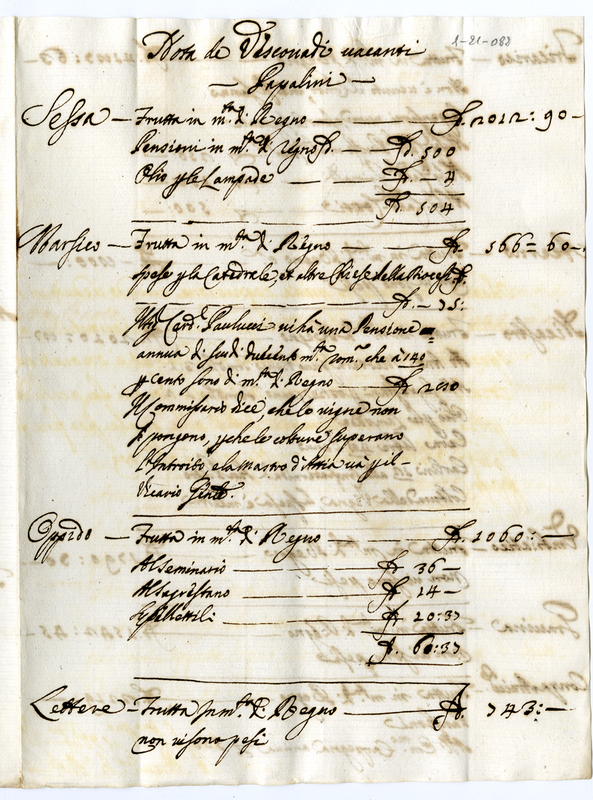 1-21-082
Nota de Vescouadi uacanti
— Papalini —
Sessa — Frutta in m.ta di Regno — 2012: 90 —
Pensioni in m.ta di Regno — 500
Olio p le Lampade — — 4
504
Marsico — Frutta in m.ta di Regno — 566= 60 —
spese p la Catedrale, et altre Chiese della Diocesi
— 75:
Card.e Paulucci ui hà una Pensione
annua di scudi duecento m.ta rom.a, che à 140
p cento sono di m.ta di Regno — 280
Il Commissario dice, che le uigne non
si pongono, p che le colture superano
l'Introito, e la Mastro d'Attia uà p il
Vicario Gen.le.
Oppido — Frutta in m.ta di Regno — 1060: —
Al Seminario — 36 —
Al Sagrestano — 14 —
Suppellettili — 10:37
60:37
Lettere — Frutta in m.ta di Regno — 743: —
non ui sono pesi